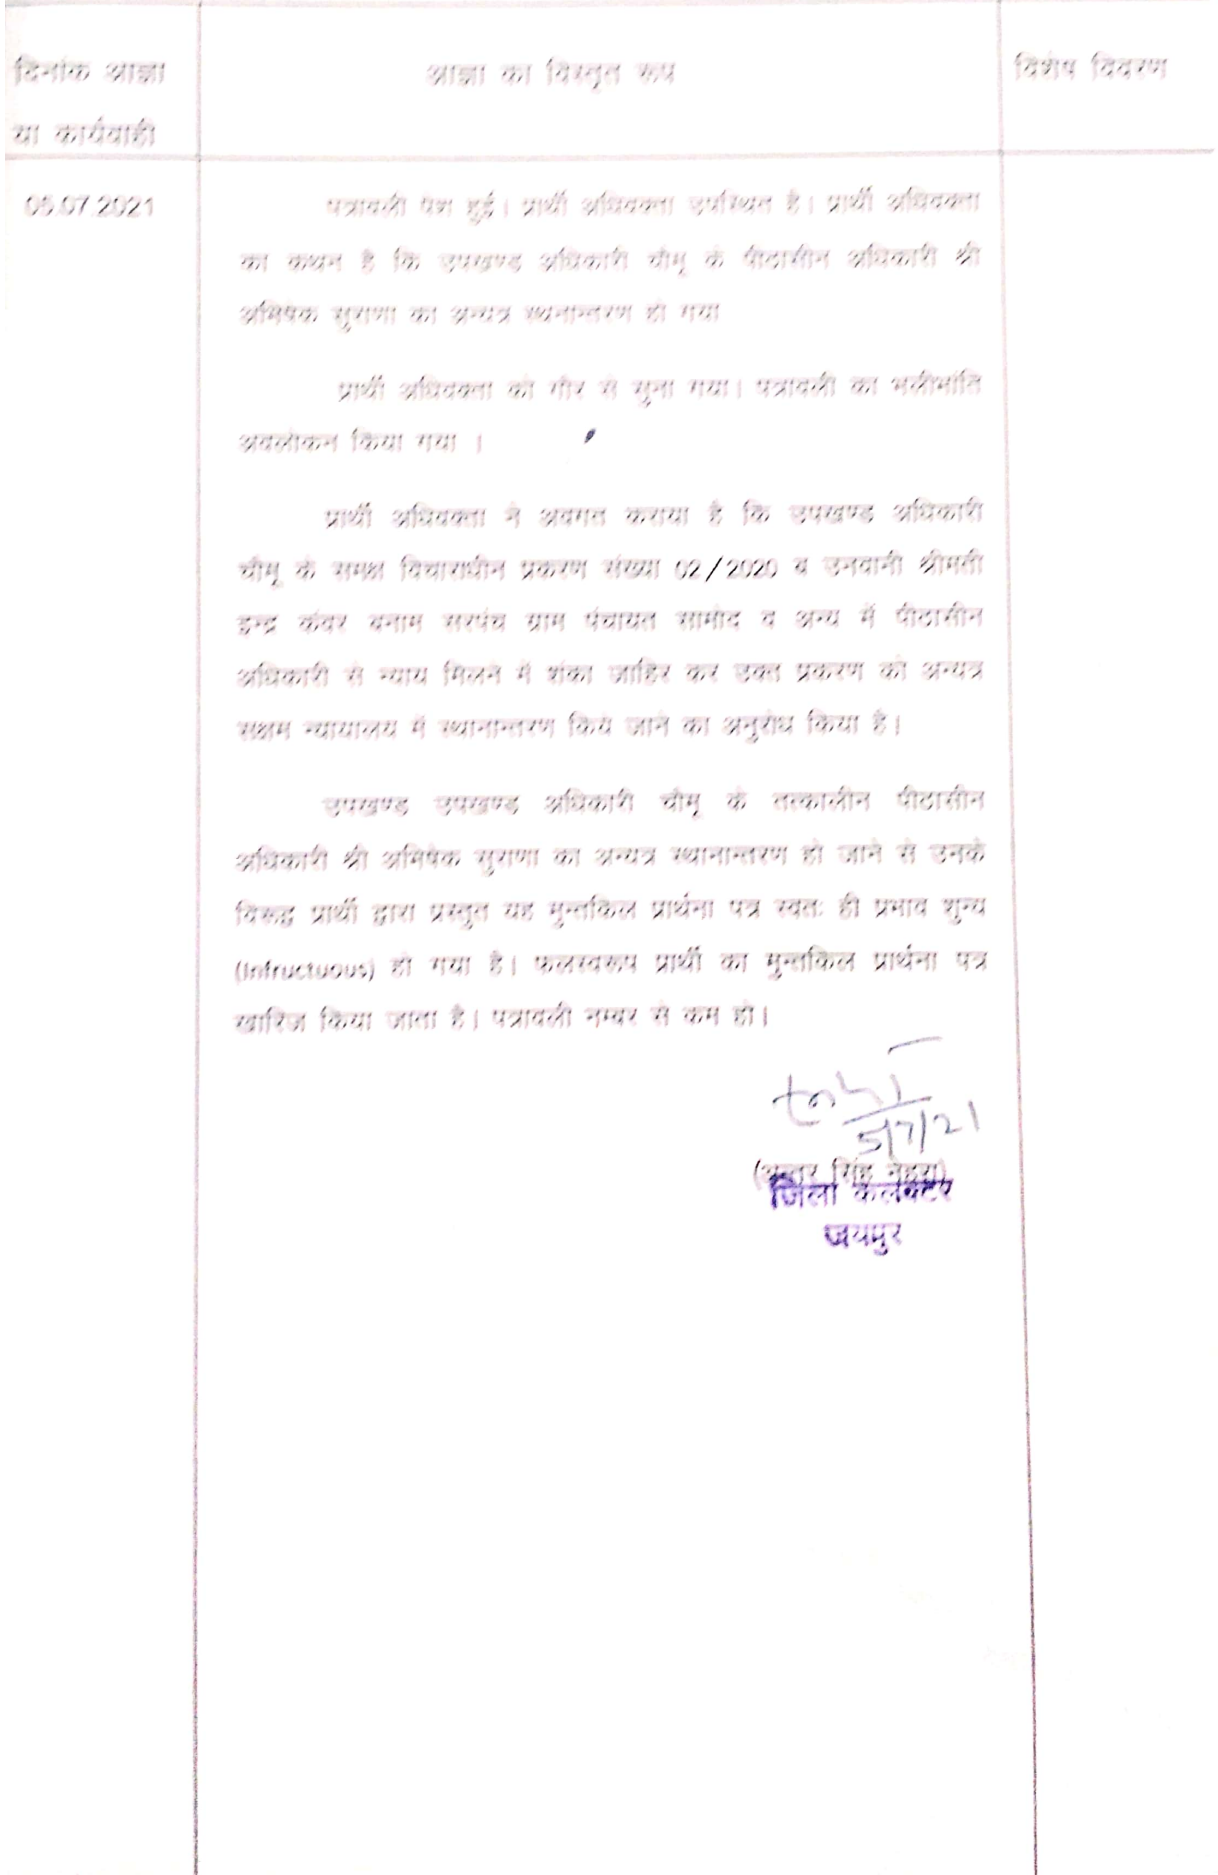 दिनांक आज्ञा
या कार्यवाही
आज्ञा का विस्तृत रूप
विशेष विवरण
05.07.2021
पत्रावली पेश हुई। प्रार्थी अधिवक्ता उपस्थित है। प्रार्थी अधिवक्ता
का कथन है कि उपखण्ड अधिकारी चौमू के पीठासीन अधिकारी श्री
अभिषेक सुराणा का अन्यत्र स्थनान्तरण हो गया
प्रार्थी अधिवक्ता को गौर से सुना गया। पत्रावली का भलीभांति
अवलोकन किया गया ।
प्रार्थी अधिवक्ता ने अवगत कराया है कि उपखण्ड अधिकारी
चौमू के समक्ष विचाराधीन प्रकरण संख्या 02/2020 ब उनवानी श्रीमती
इन्द्र कंवर बनाम सरपंच ग्राम पंचायत सामोद व अन्य में पीठासीन
अधिकारी से न्याय मिलने में शंका जाहिर कर उक्त प्रकरण को अन्यत्र
सक्षम न्यायालय में स्थानान्तरण किये जाने का अनुरोध किया है।
उपखण्ड उपखण्ड अधिकारी चौमू के तत्कालीन पीठासीन
अधिकारी श्री अभिषेक सुराणा का अन्यत्र स्थानान्तरण हो जाने से उनके
विरूद्ध प्रार्थी द्वारा प्रस्तुत यह मुन्तकिल प्रार्थना पत्र स्वतः ही प्रभाव शून्य
(Infructuous) हो गया है। फलस्वरूप प्रार्थी का मुन्तकिल प्रार्थना पत्र
खारिज किया जाता है। पत्रावली नम्बर से कम हो।
5/7/21
(अन्तर सिंह नेहरा)
जिला कलक्टर
जयपुर